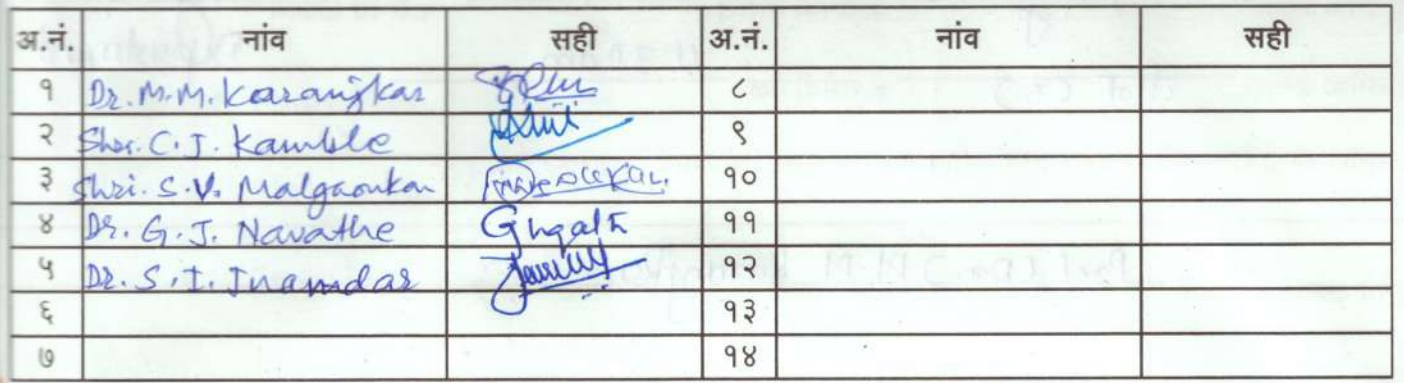 अ.नं. नांव सही अ.नं. नांव सही
१ Dr. M.M. Karangkar ८
२ Shri. C.J. Kamble ९
३ Shri. S.V. Malgaonkar १०
४ Dr. G.J. Navathe ११
५ Dr. S.I. Inamdar १२
६ १३
७ १४